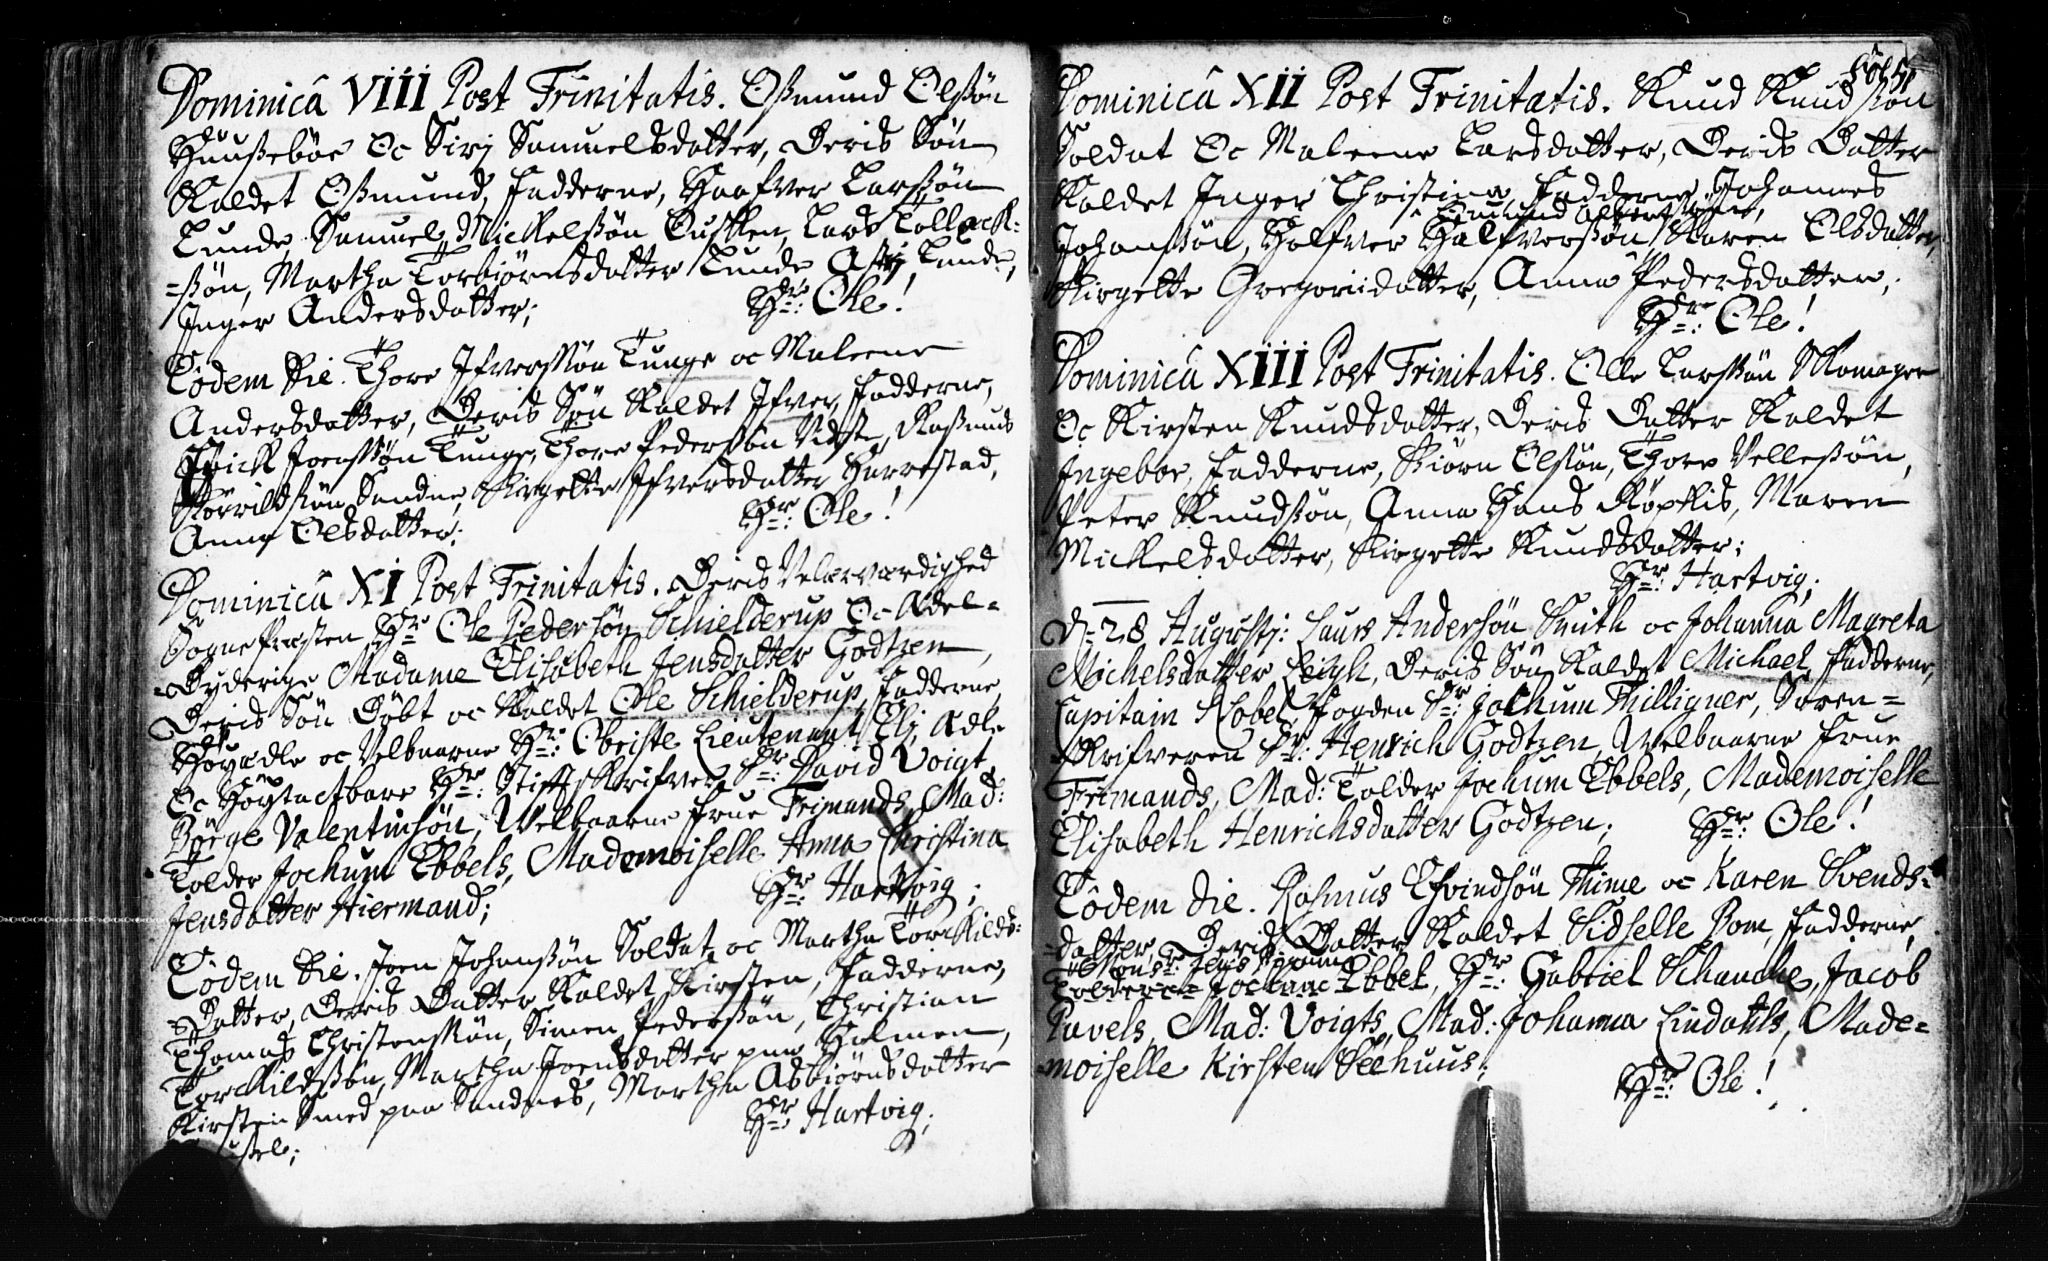 Dominicâ VIII Post Trinitatis. Oßmund Olßön
Huußeböe Oc Sirj Samuelsdatter, Deris Sön
Kaldet Oßmund, Fadderne, Haafver Larßön
Lunde, Samuel Mickelßön Auſtlen, Lars Tollack:
=ßön, Martha Torbiörnsdatter Lunde Astrj Lunde,
Inger Andersdatter; Hr: Ole!
Eôdem Die. Thore Ifverßön Tunge oc Maleene
Andersdatter, Deris Sön Kaldet Ifver, Fadderne,
Joenßön Tunge, Thore Pederßön Viste, Raßmus
Sandne, Birgette Ifversdatter Harrestad,
Anne Olsdatter; Hr: Ole!
Dominicâ XI Post Trinitatis. Deris Velærværdighed
Sogne Præsten Hr: Ole Pedersön Schielderup Oc Adel-
-Dyderige Madame Elisabeth Jensdatter Godtzen,
Deris Sön Döbt oc Kaldet Ole Schielderup, Fadderne,
Höyædle oc Velbaarne Hr: Obriste Lieutenant Elj, Ædle
Oc Höytactbare Hr: Stiftskrifver Sr: David Voigt,
Börge Valentinsön, Welbaarne Frue Frimands, Mad:
Tolder Jochum Ebbels, Mademoiselle Anna Christina
Jensdatter Hiermand; Hr: Hartvig;
Eôdem Die. Joen Johanßön Soldat oc Martha Torckilds:
-Datter, Deris Datter Kaldet Kirsten, Fadderne,
Thomas Christenßön, Simen Pederßön, Christian
Torckildßön, Martha Joensdatter paa Holmen,
Kirsten Smed paa Sandnes, Martha Asbiörnsdatter
Hr: Hartvig;
Fol 51
Dominicâ XII Post Trinitatis. Knud Knudßön
Soldat Oc Maleene Larsdatter, Deris Datter
Kaldet Inger Christina, Fadderne, Johannes
Johanßön, Halfver Halfverßön, Karen Olsdatter,
Birgette Gregoriidatter, Anna Pedersdatter;
Hr: Ole!
Dominicâ XIII Post Trinitatis. Olle Larßön Skomager
Oc Kirsten Knudsdatter, Deris Datter Kaldet
Ingebor, Fadderne, Biörn Olßön, Thore Velleßön,
Peter Knudßön, Anna Hans Köpkis, Maren
Mickelsdatter, Birgette Knudsdatter;
Hr: Hartvig;
D. 28 Augustj: Laurs Andersön Smith oc Johanna Magreta
Michelsdatter Leigh, Deris Sön Kaldet Michael, Fadderne,
Capitain Kobel, Fogden Sr: Jochum Thilligner, Soren-
-Skrifveren Sr: Henrich Godtzen, Welbaarne Frue
Frimands, Mad: Tolder Jochum Ebbels, Mademoiselle
Elisabeth Henrichsdatter Godtzen; Hr: Ole!
Eôdem die. Rasmus Efvindsön Thime oc Karen Svends:
-datter, Deris Datter Kaldet Sidselle Bom, Fadderne,
Ebbel, Hr: Gabriel Schanche, Jacob
Pavels, Mad: Voigts, Mad: Johanna Lindahls, Made-
-moiselle Kirsten Seehuus;
Hr: Ole!